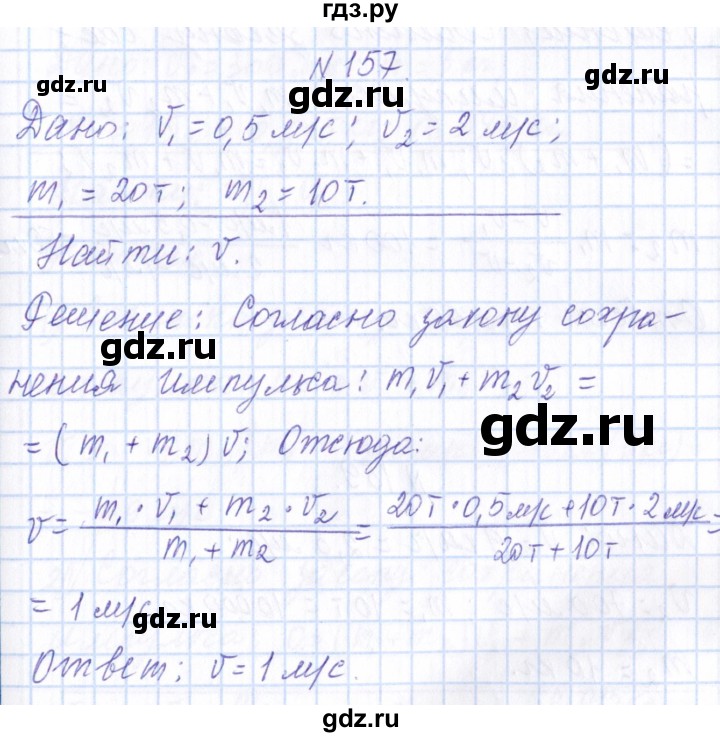 гдз.ру
gdz.ru
N 157.
gdz.ru
Дано: v₁ = 0,5 м/с; v₂ = 2 м/с;
m₁ = 20т; m₂ = 10т.
Найти: v.
gdz.ru
Решение: Согласно закону сохра-
gdz.ru
нения импульса: m₁v₁ + m₂v₂ =
gdz.ru
= (m₁ + m₂) v; Отсюда:
v = (m₁ · v₁ + m₂ · v₂)/(m₁ + m₂) = (20т · 0,5 м/с + 10т · 2 м/с)/(20т + 10т) =
gdz.ru
= 1 м/с
gdz.ru
Ответ: v = 1 м/с.
gdz.ru